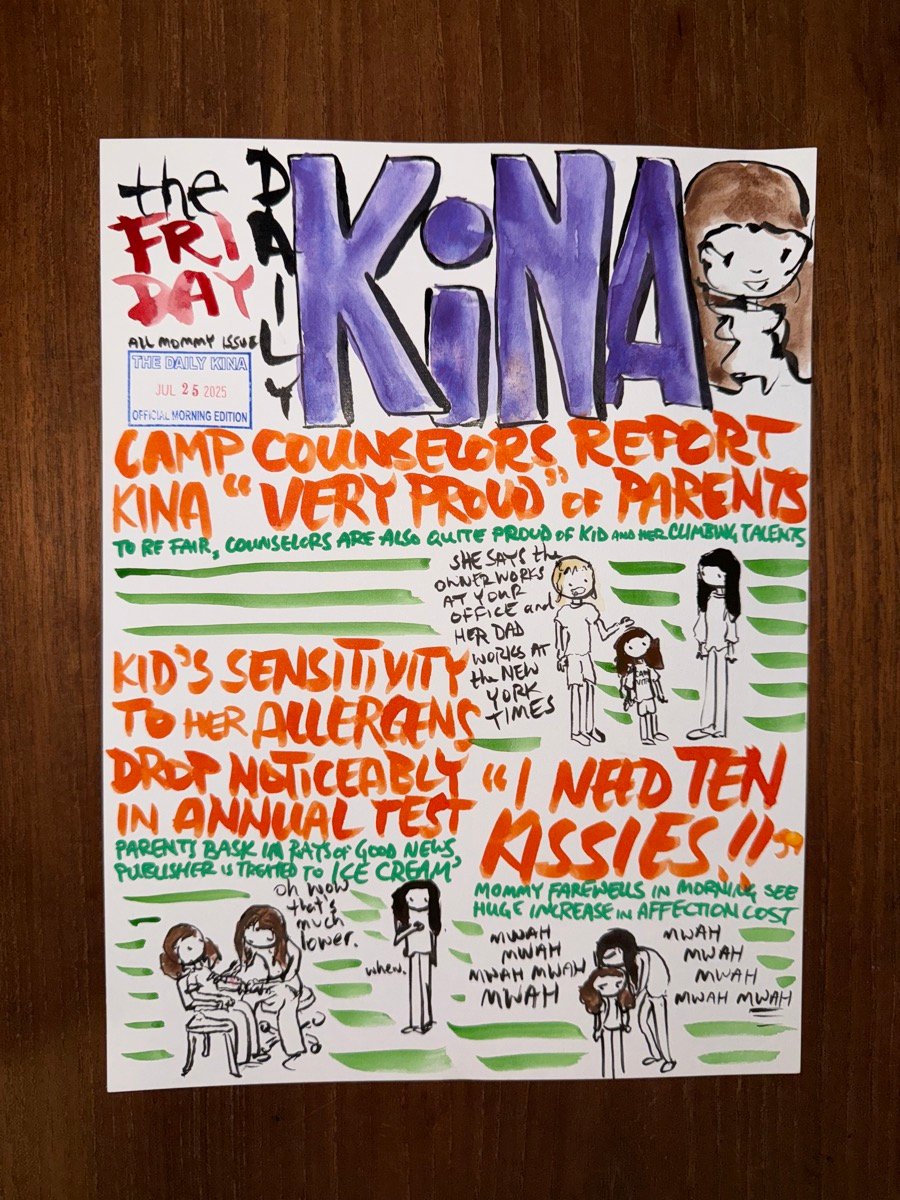 the
FRI
DAY
DAILY
KiNA
ALL MOMMY ISSUE
THE DAILY KINA
JUL 25 2025
OFFICIAL MORNING EDITION
CAMP COUNSELORS REPORT
KINA "VERY PROUD" OF PARENTS
TO BE FAIR, COUNSELORS ARE ALSO QUITE PROUD OF KID AND HER CLIMBING TALENTS
SHE SAYS the
OWNER WORKS
AT YOUR
OFFICE and
HER DAD
WORKS AT
the NEW
YORK
TIMES
KID'S SENSITIVITY
TO HER ALLERGENS
DROP NOTICEABLY
IN ANNUAL TEST
PARENTS BASK IN RAYS OF GOOD NEWS,
PUBLISHER IS TREATED TO ICE CREAM
oh wow
that's
much
lower.
whew.
"I NEED TEN
KISSIES!!"
MOMMY FAREWELLS IN MORNING SEE
HUGE INCREASE IN AFFECTION COST
MWAH
MWAH
MWAH MWAH
MWAH
MWAH
MWAH
MWAH
MWAH MWAH